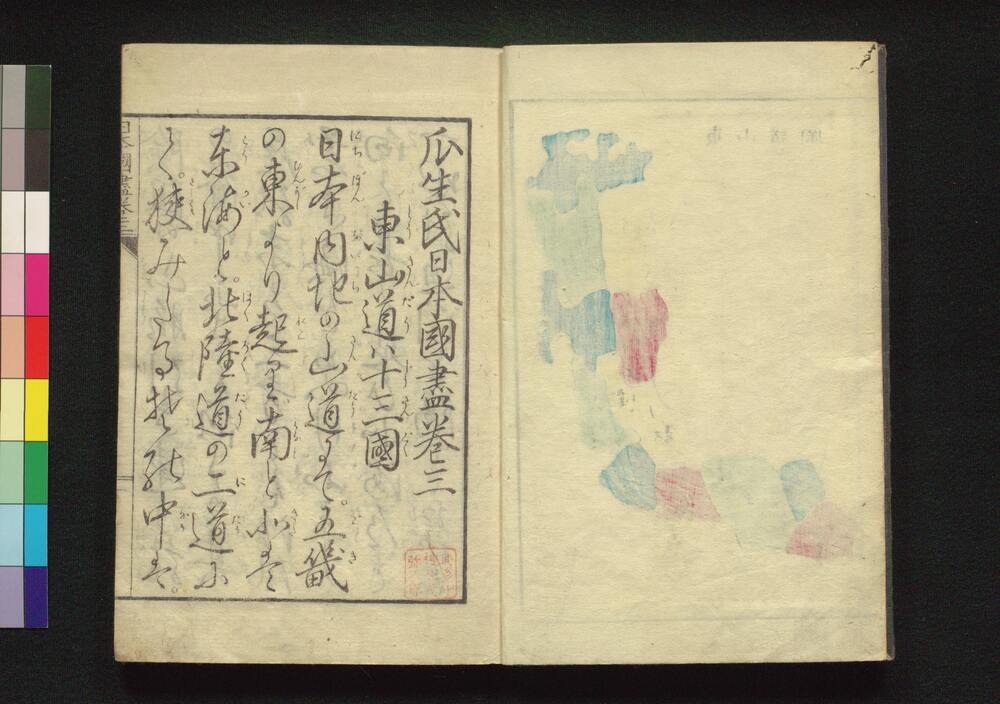 東山道圖
瓜生氏日本國盡巻三
東山道ハ十三國
日本内地の山道にて。五畿
の東より起り南と北は
東海と。北陸道の二道に
て。挾みたる其の中は。
日本國盡巻三